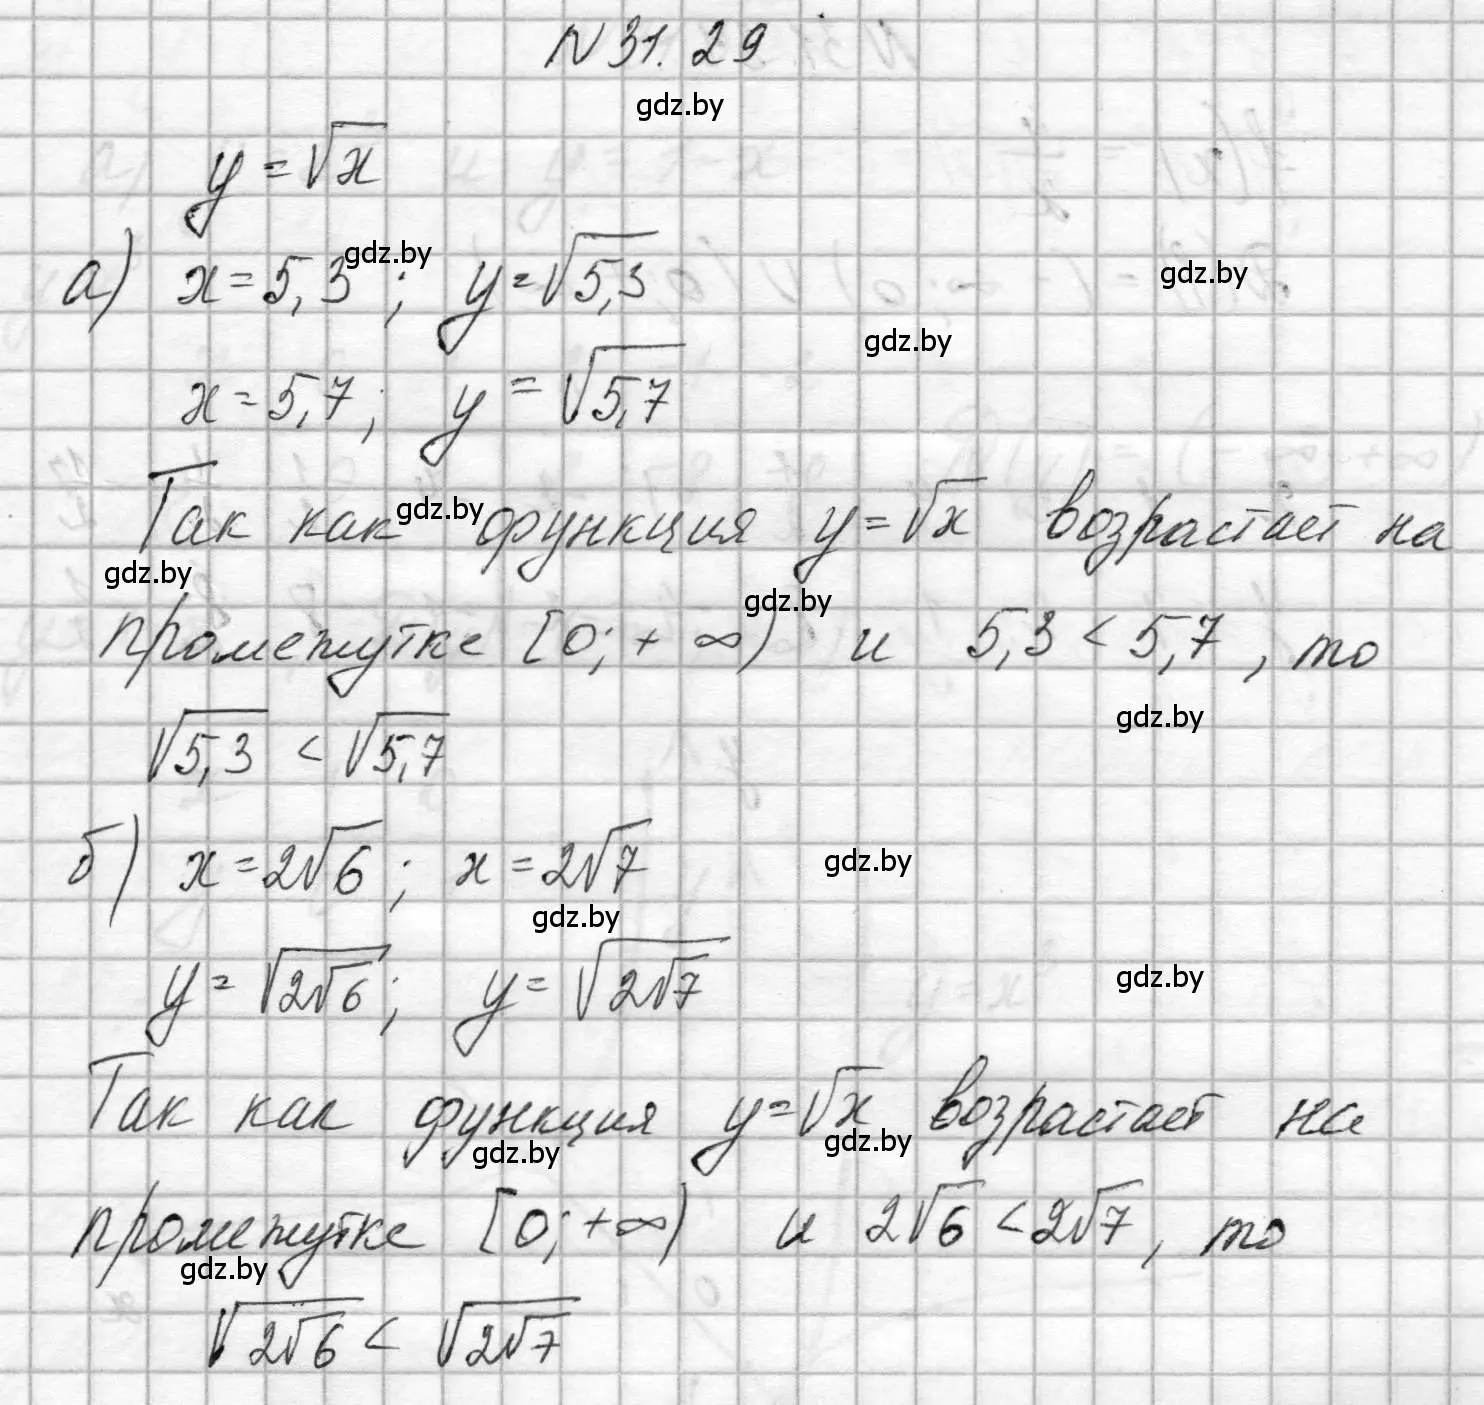 N 31.29
gdz.by
y = √x
а) x = 5,3 ; y = √5,3
gdz.by
gdz.by
gdz.by
x = 5,7 ; y = √5,7
Так как функция y = √x возрастает на
gdz.by
gdz.by
gdz.by
промежутке [0; + ∞) и 5,3 < 5,7, то
gdz.by
√5,3 < √5,7
б) x = 2√6 ; x = 2√7
gdz.by
gdz.by
y = √(2√6) ; y = √(2√7)
gdz.by
Так как функция y = √x возрастает на
gdz.by
gdz.by
промежутке [0; +∞) и 2√6 < 2√7, то
gdz.by
√(2√6) < √(2√7)